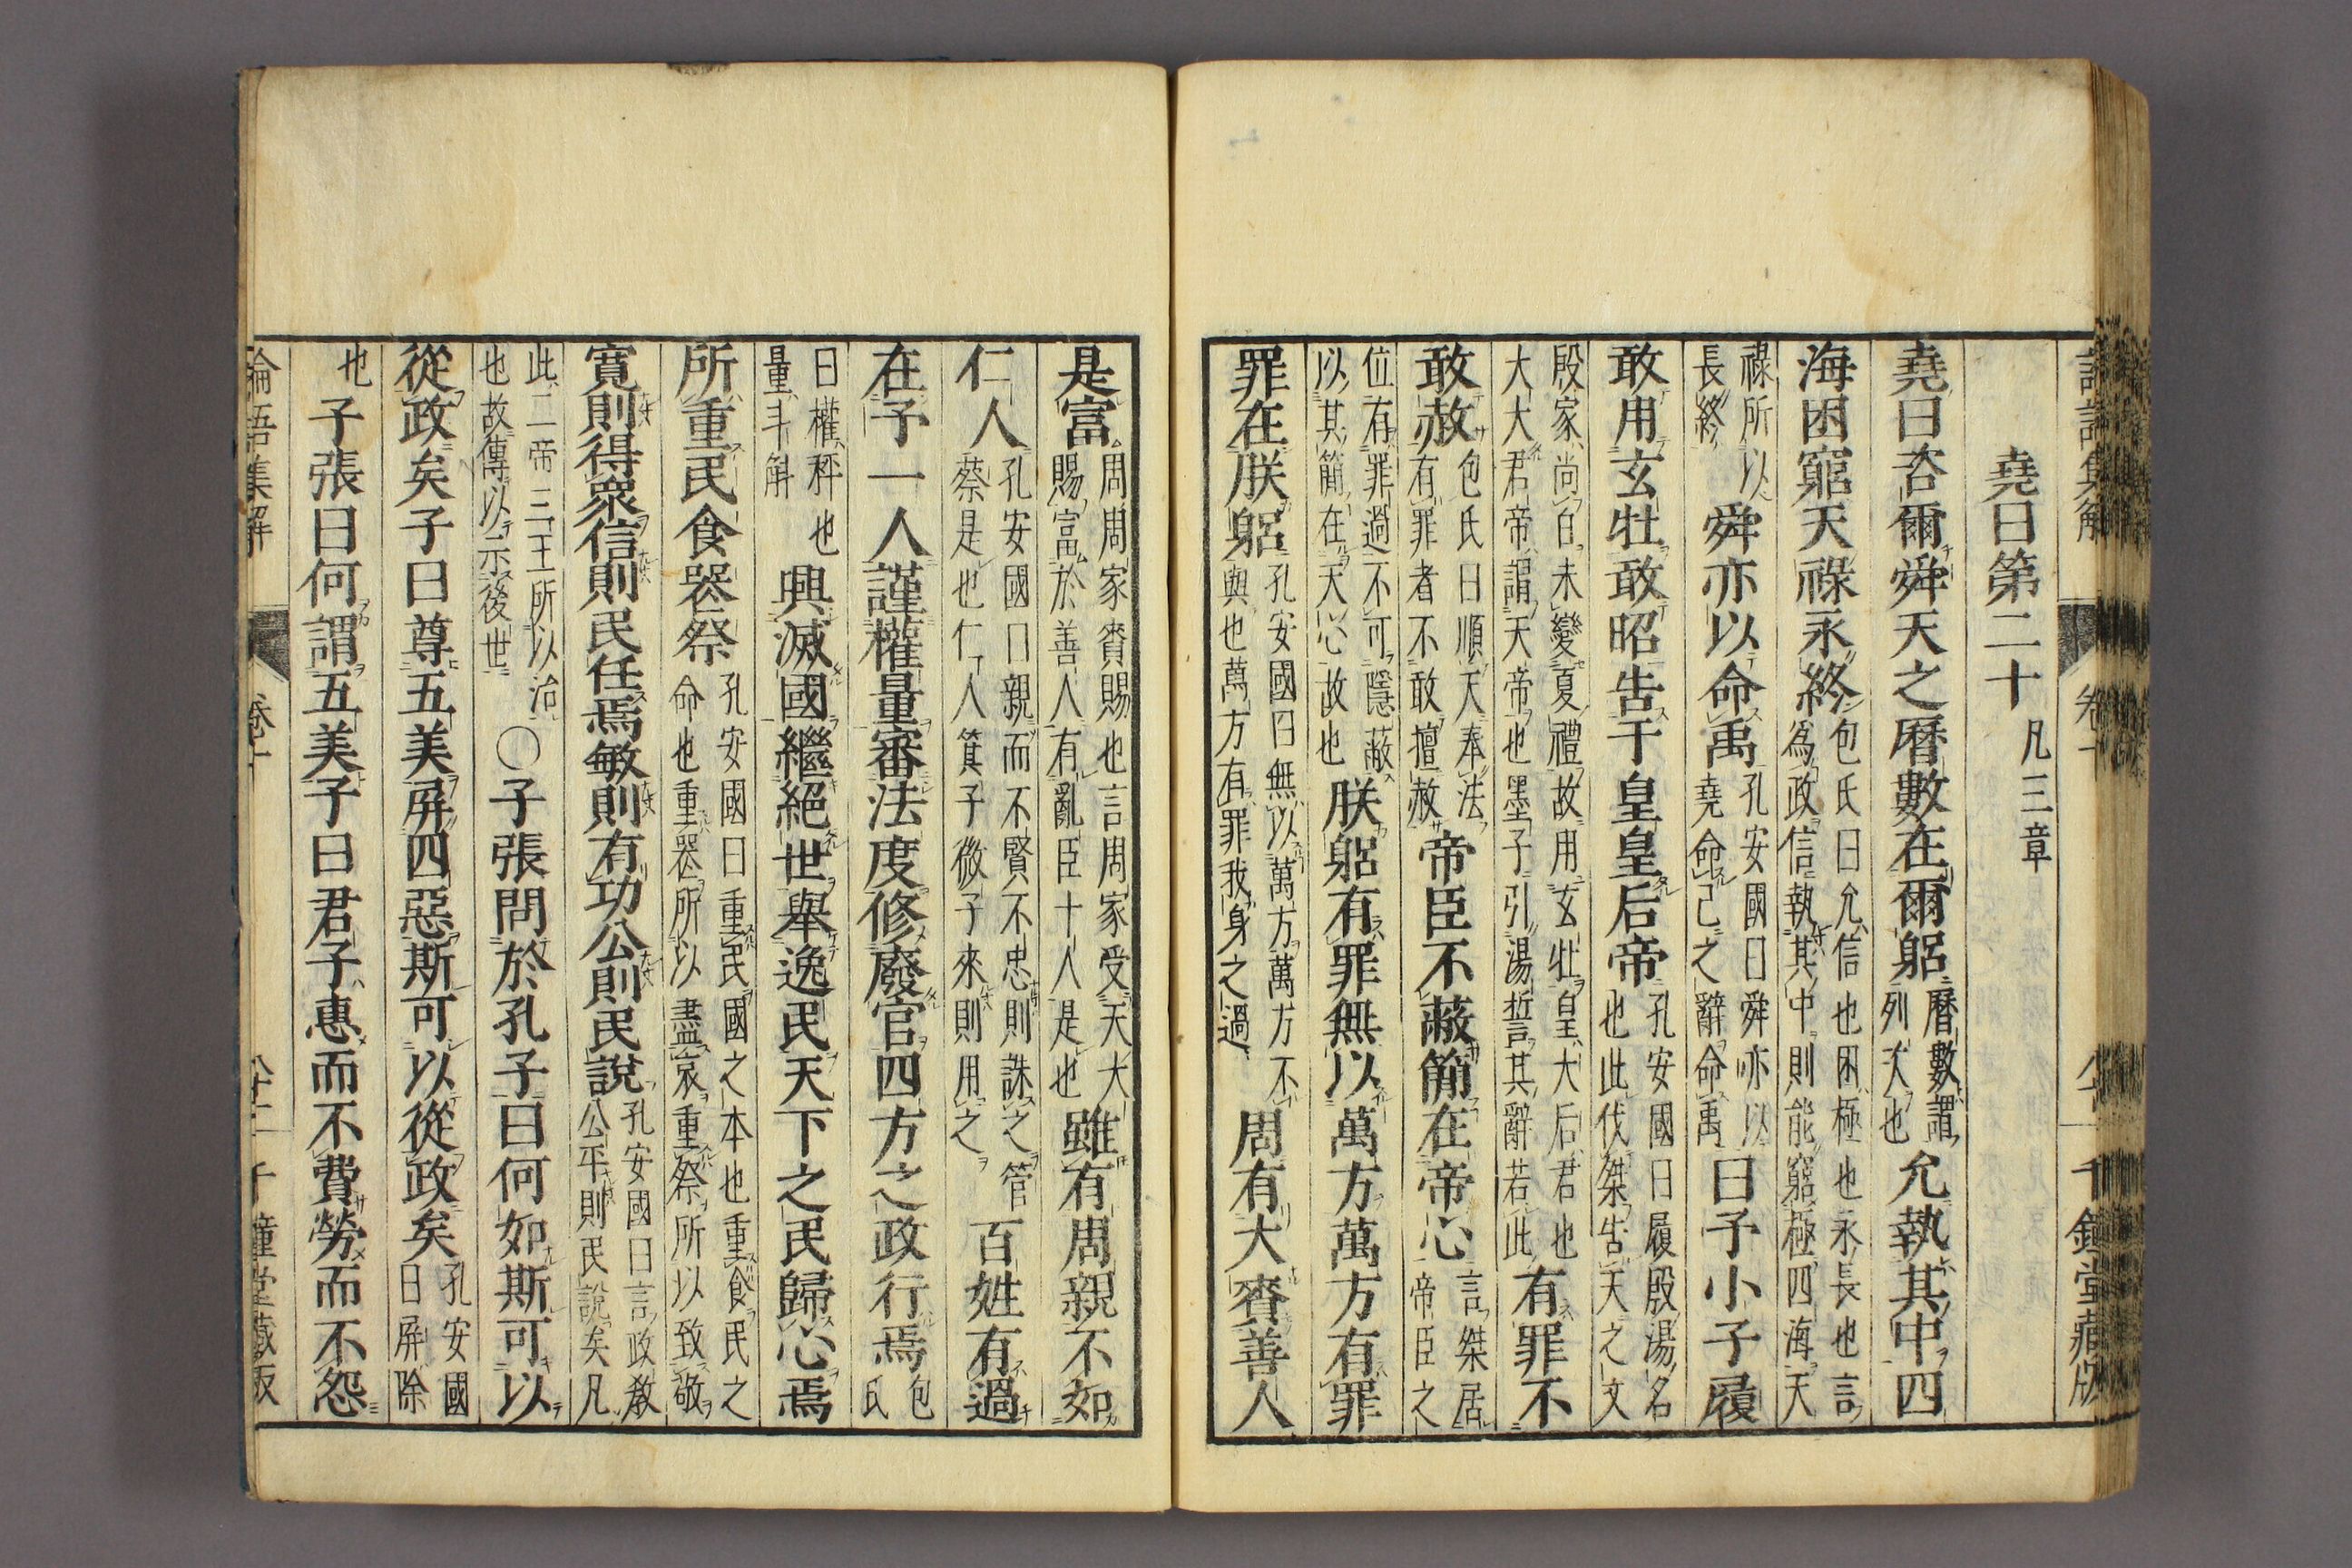 堯曰第二十 凡三章
堯曰咨爾舜天之曆數在爾躬曆數謂列次也允執其中四
海困窮天祿永終包氏曰允信也困極也永長也言為政信執其中則能窮極四海天
祿所以長終舜亦以命禹孔安國曰舜亦以堯命己之辭命禹曰予小子履
敢用玄牡敢昭告于皇皇后帝孔安國曰履殷湯名也此伐桀告天之文
殷家尚白未變夏禮故用玄牡皇大后君也大大君帝謂天帝也墨子引湯誓其辭若此有罪不
敢赦包氏曰順天奉法有罪者不敢擅赦帝臣不蔽簡在帝心言桀居帝臣之
位有罪過不可隱蔽以其簡在天心故也朕躬有罪無以萬方萬方有罪
罪在朕躬孔安國曰無以萬方萬方不與也萬方有罪我身之過周有大賚善人
是富周周家賚賜也言周家受天大賜富於善人有亂臣十人是也雖有周親不如
仁人孔安國曰親而不賢不忠則誅之管蔡是也仁人箕子微子來則用之百姓有過
在予一人謹權量審法度修廢官四方之政行焉包氏
曰權秤也量斗斛興滅國繼絕世舉逸民天下之民歸心焉
所重民食喪祭孔安國曰重民國之本也重食民之命也重喪所以盡哀重祭所以致敬
寬則得眾信則民任焉敏則有功公則民說孔安國曰言政教公平則民說矣凡
此二帝三王所以治也故傳以示後世〇子張問於孔子曰何如斯可以
從政矣子曰尊五美屏四惡斯可以從政矣孔安國曰屏除
也子張曰何謂五美子曰君子惠而不費勞而不怨
論語集解